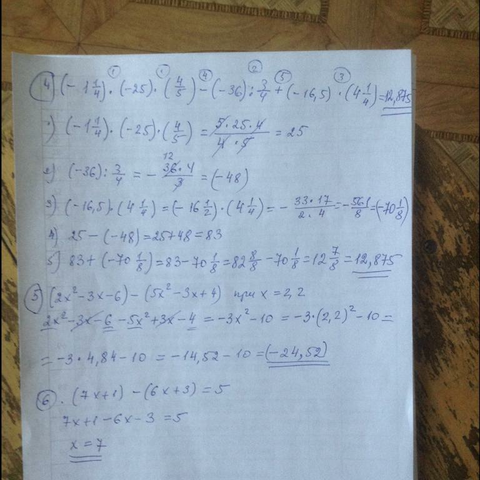 4) (-1 1/4)·(-25)·(4/5)-(-36):3/4+(-16,5)·(4 1/4)=12,875
1) (-1 1/4)·(-25)·(4/5) = 5·25·4/4·5 = 25
2) (-36):3/4 = - 36·4/3 = (-48)
3) (-16,5)·(4 1/4)=(-16 1/2)·(4 1/4)=- 33·17/2·4=-561/8=(-70 1/8)
4) 25-(-48)=25+48=83
5) 83+(-70 1/8)=83-70 1/8=82 8/8-70 1/8=12 7/8=12,875
5 (2x²-3x-6)-(5x²-3x+4) при x=2,2
2x²-3x-6-5x²+3x-4=-3x²-10=-3·(2,2)²-10=
=-3·4,84-10=-14,52-10=(-24,52)
6. (7x+1)-(6x+3)=5
7x+1-6x-3=5
x=7